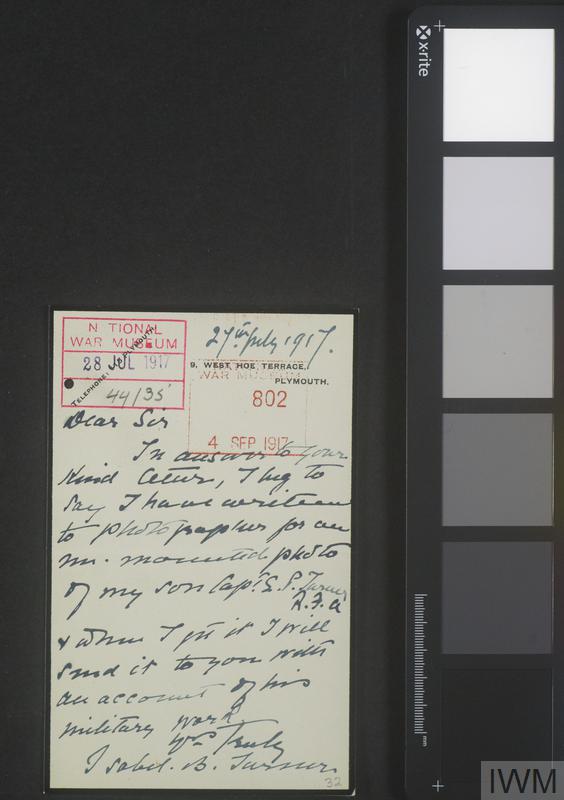 x-rite
N TIONAL
WAR MUSEUM
28 JUL 1917
44/35
TELEPHONE: PLYMOUTH.
27th July 1917.
9, WEST HOE TERRACE,
PLYMOUTH.
WAR MUSEUM
802
4 SEP 1917
Dear Sir
In answer to your
kind letter, I beg to
say I have written
to photographer for an
un-mounted photo
of my son Capt. G. P. Turner
R.F.A
& when I get it I will
send it to you with
an account of his
military work
yrs truly
Isabel. B. Turner
32
mm
IWM